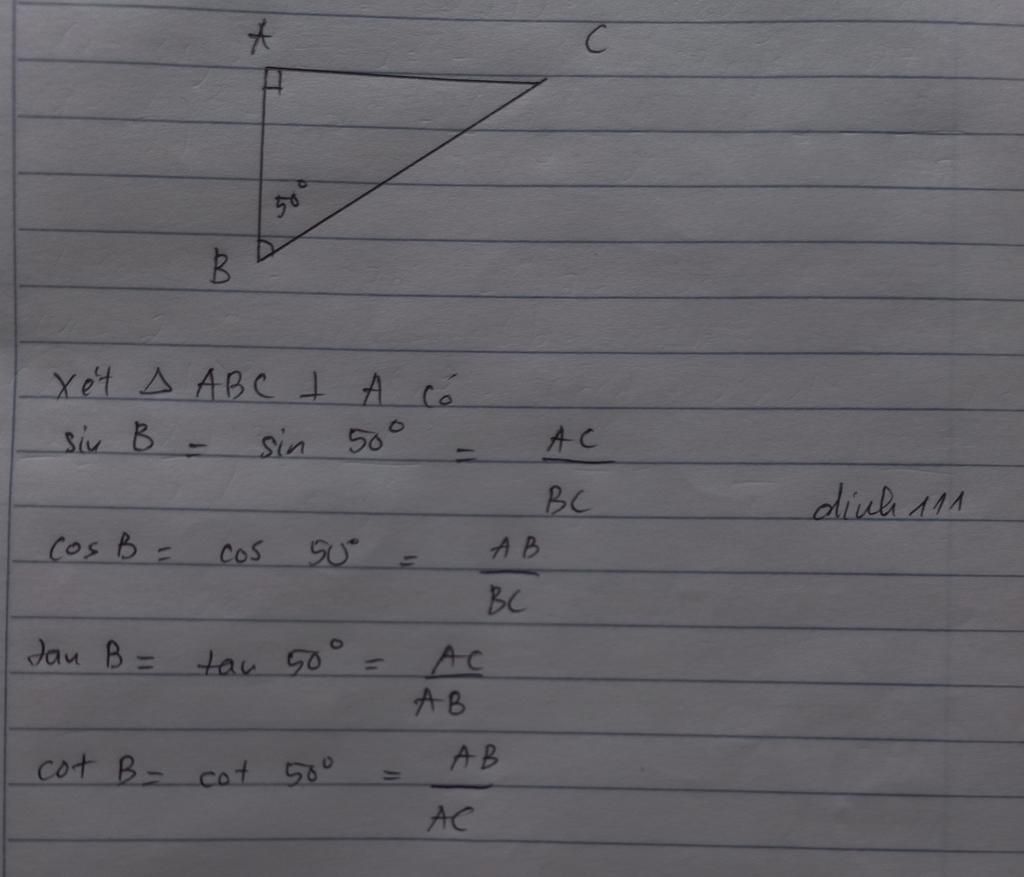 A C
50°
B
Xét Δ ABC ⊥ A có
sin B = sin 50° = AC / BC
dinh 111
cos B = cos 50° = AB / BC
tan B = tan 50° = AC / AB
cot B = cot 50° = AB / AC